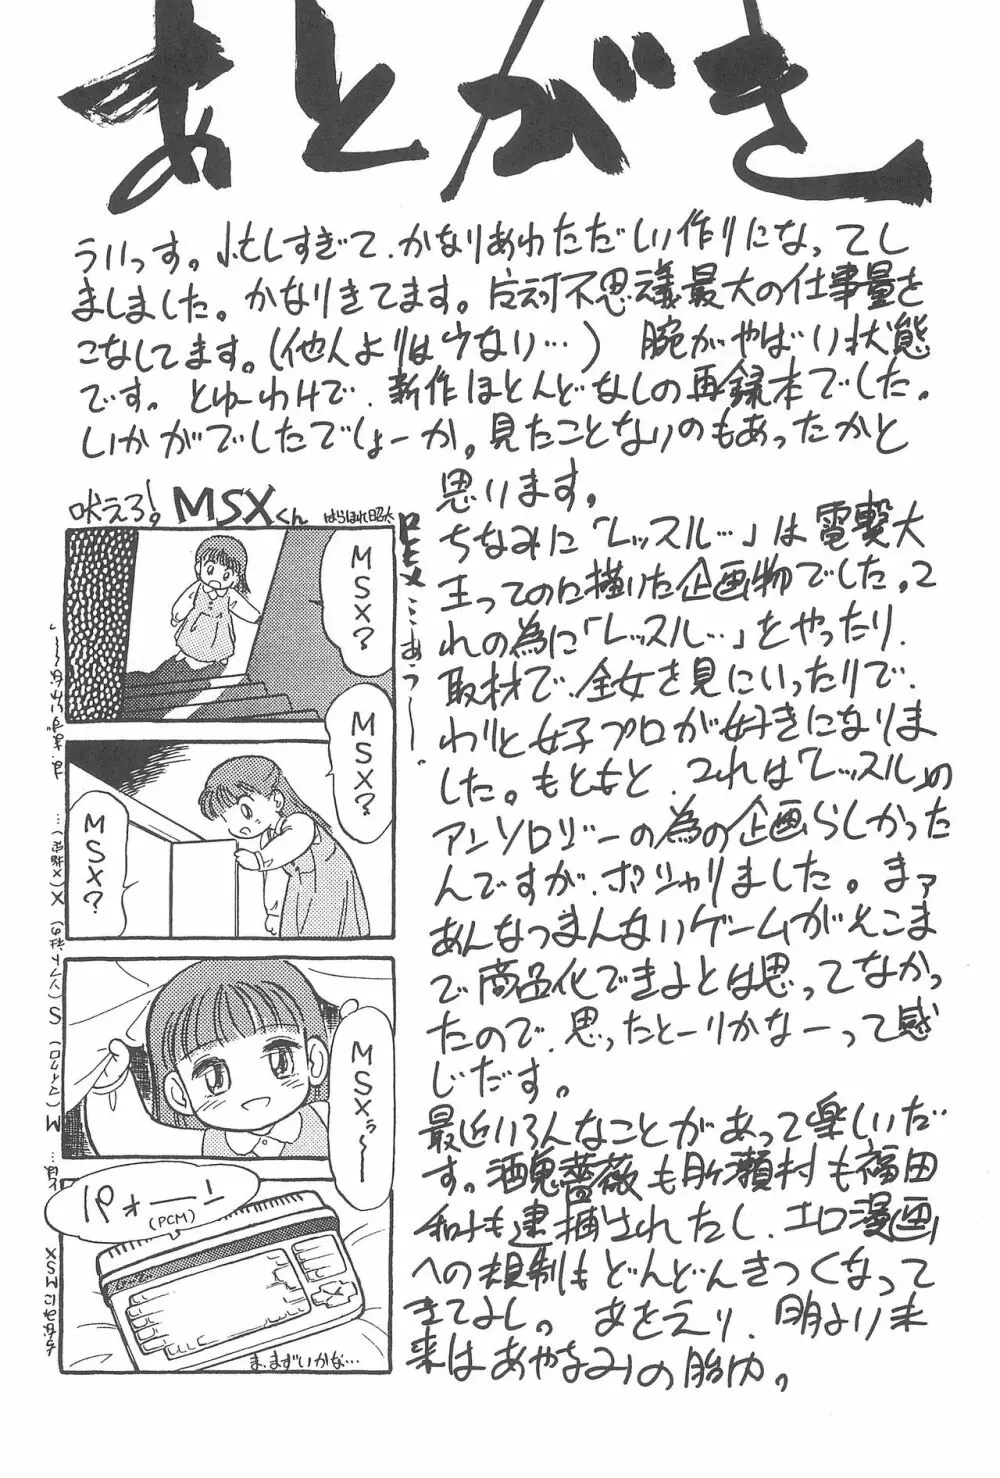 あとがき
ういっす。忙しすぎて、かなりあわただしい作りになってし
ましました。かなりきてます。反対不思議最大の仕事量を
こなしてます。(他人よりは少ない…) 腕がやばい状態
です。とゆーわけで、新作ほとんどなしの再録本でした。
いかがでしたでしょーか。見たことないのもあったかと
思います。
ちなみに「レッスル…」は電撃大
王ってのに描いた企画物でした。こ
れの為に「レッスル…」をやったり、
取材で、全女を見にいったりで、
わりと女子プロが好きになりま
した。もともと、これは「レッスル」の
アンソロジーの為の企画らしかった
んですが、ポシャりました。まァ
あんなつまんないゲームがそこま
で商品化できるとは思ってなかっ
たので、思ったとーりかなーって感
じだす。
最近いろんなことがあって楽しいだ
す。酒鬼薔薇も月ヶ瀬村も福田
和子も逮捕されたし、エロ漫画
への規制もどんどんきつくなって
きてよし。あとえり、明より未
来はあやなみの胎内。
吠えろ! MSXくん
はらほれ昭太
MSX?
MSX?
MSX?
MSXぅ〜
パオーー!
(PCM)
ま、まずいかな…